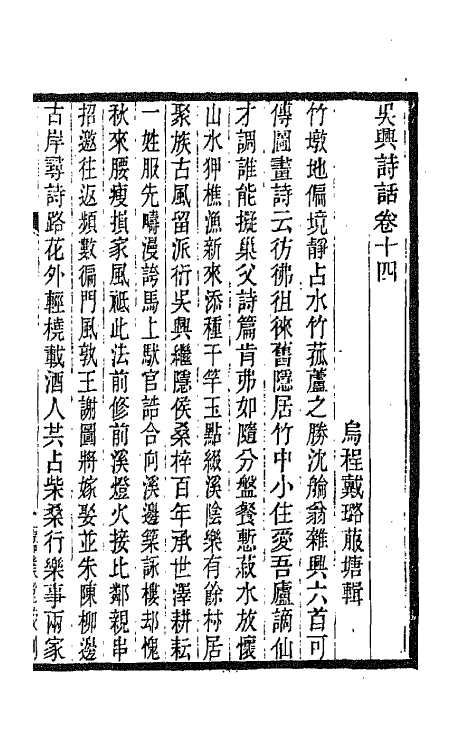 吳興詩話卷十四
烏程戴璐菔塘輯
竹墩地偏境靜占水竹菰蘆之勝沈艙翁雜興六首可
傳圖畫詩云彷彿徂徠舊隱居竹中小住愛吾廬謫仙
才調誰能擬巢父詩篇肯弗如隨分盤餐慙菽水放懷
山水狎樵漁新來添種千竿玉點綴溪陰樂有餘村居
聚族古風留派衍吳興繼隱侯桑梓百年承世澤耕耘
一姓服先疇漫誇馬上馱官誥合向溪邊築詠樓却愧
秋來腰瘦損家風祗此法前修前溪燈火接比鄰親串
招邀往返頻數徧門風敦王謝圖將嫁娶並朱陳柳邊
古岸尋詩路花外輕橈載酒人共占柴桑行樂事兩家